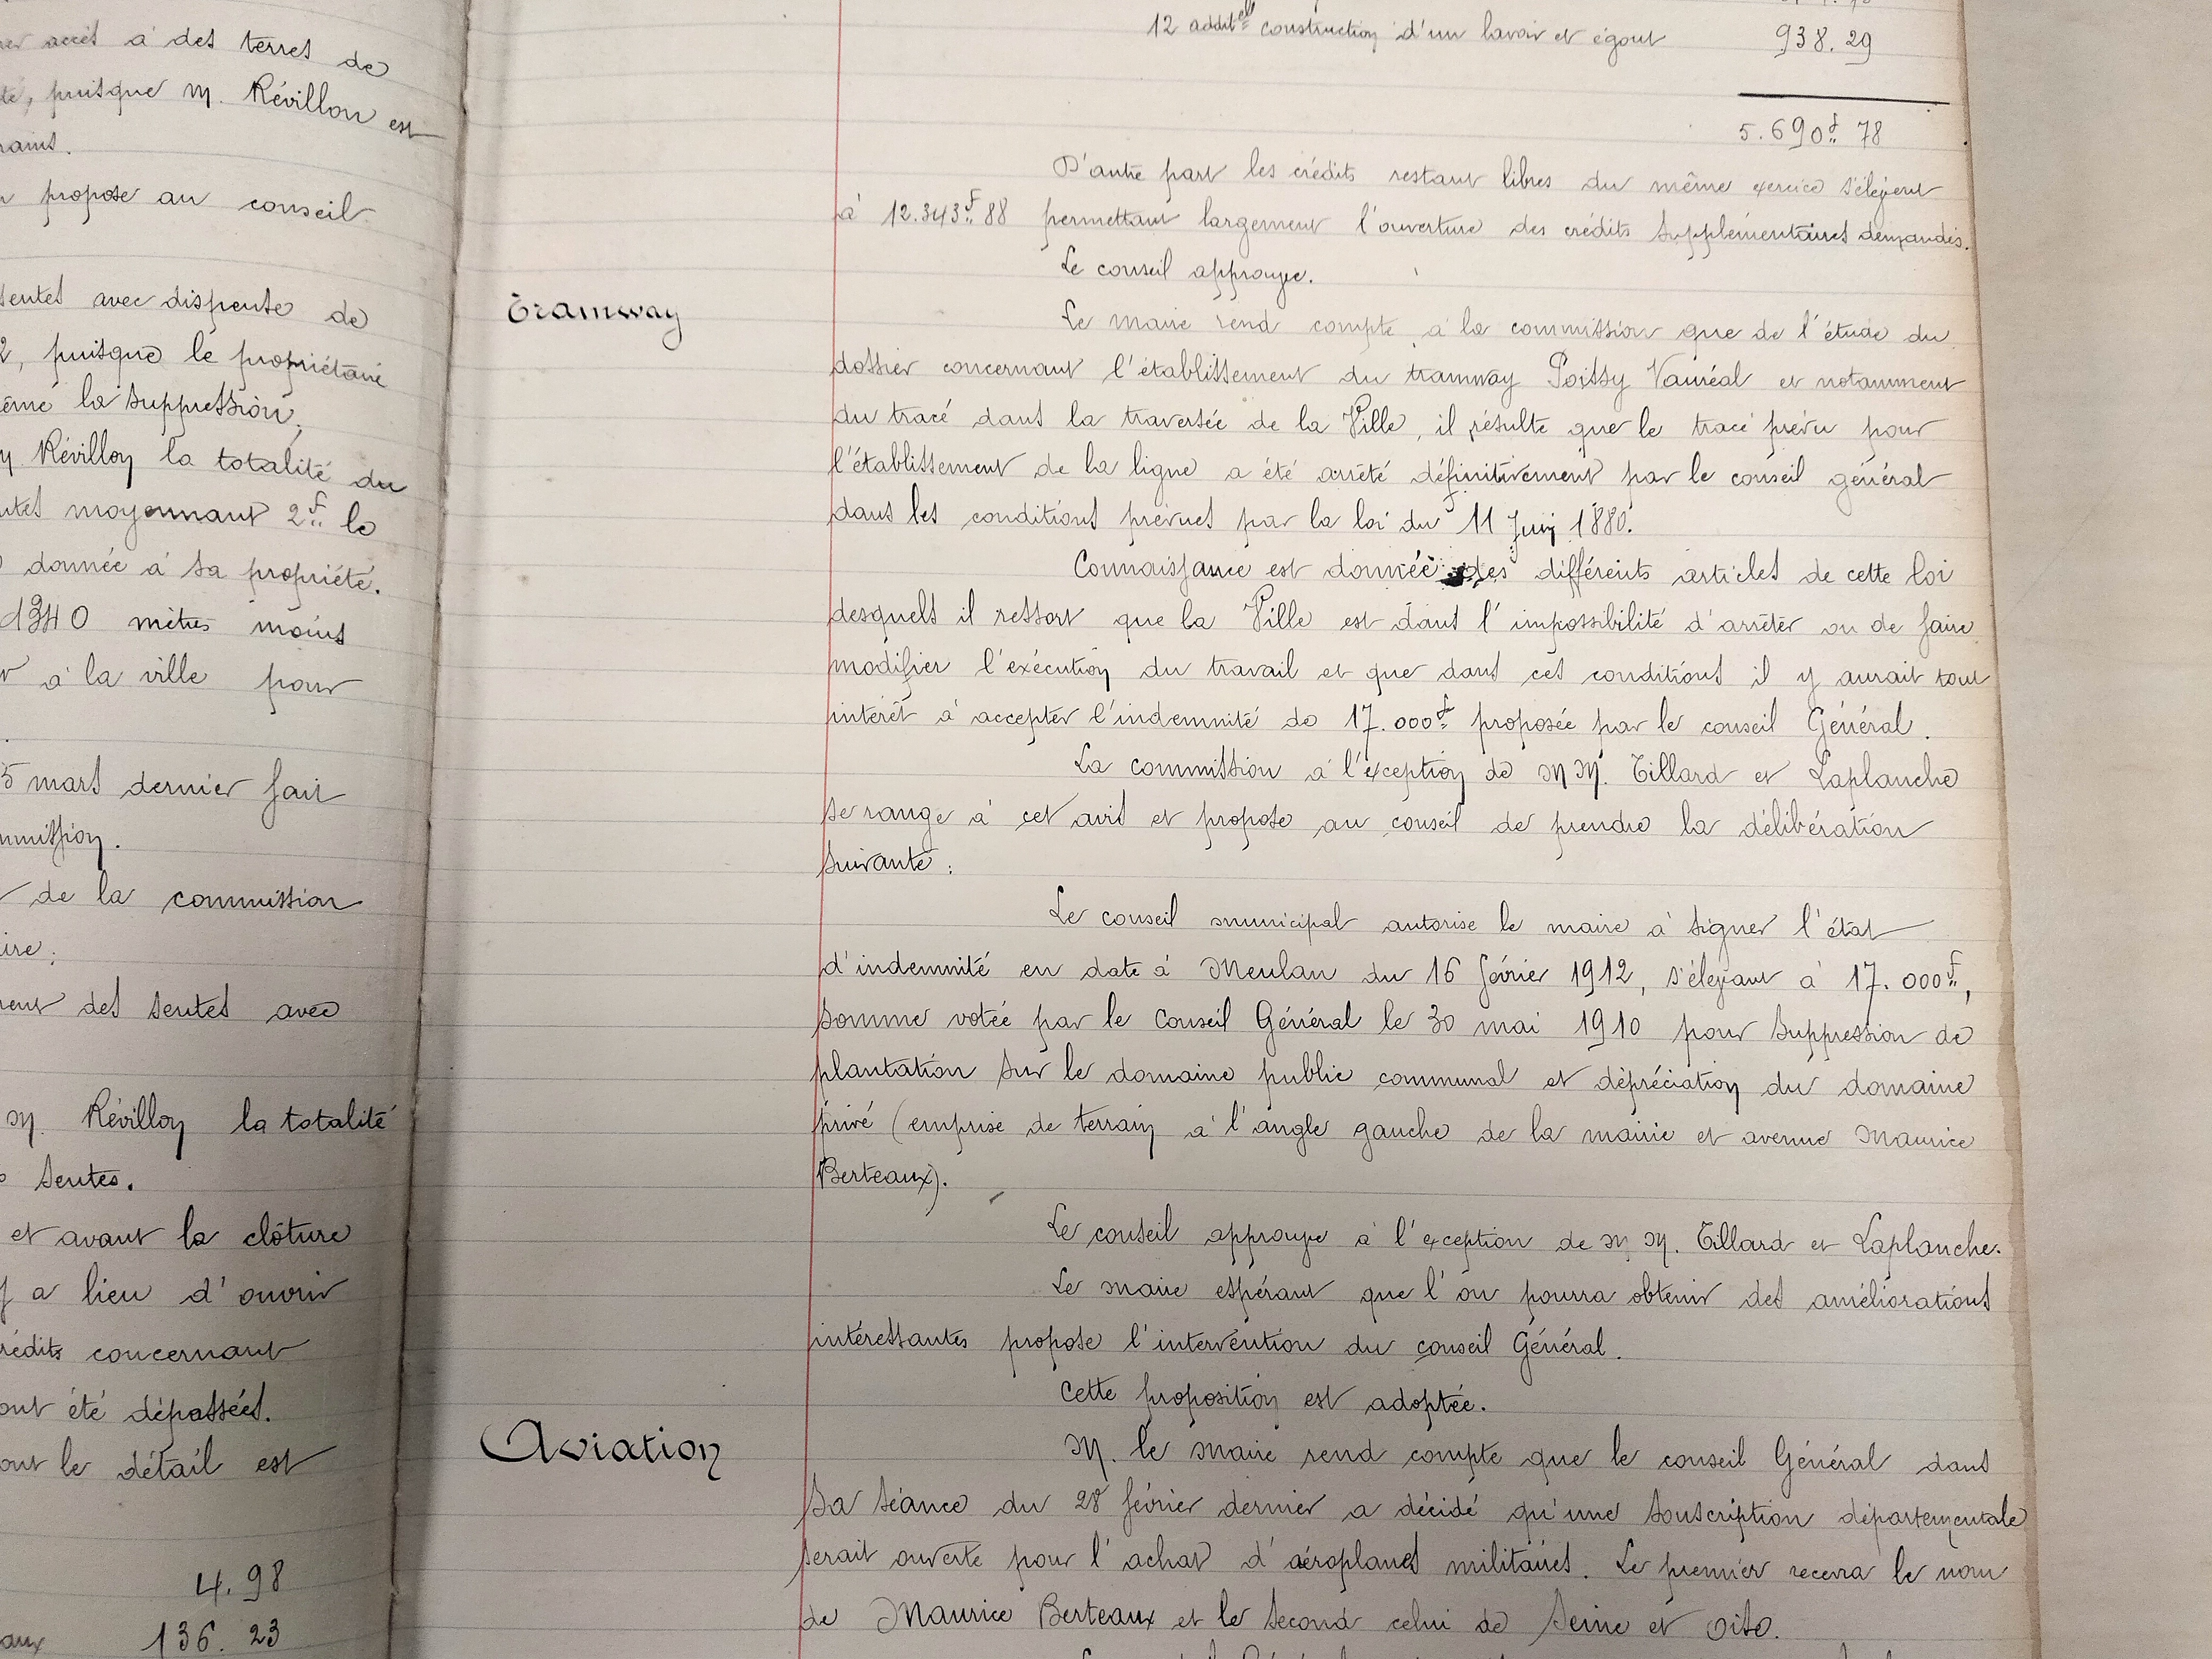 accès à des terres de
puisque M. Révillon est
propose au conseil
sentes avec dispense de
2, puisque le propriétaire
même la suppression,
M. Révillon la totalité du
moyennant 2f.. le
donnée à sa propriété.
1340 mètres moins
à la ville pour
5 mars dernier fait
commission.
de la commission
des sentes avec
M. Révillon la totalité
sentes.
et avant la clôture
y a lieu d'ouvrir
crédits concernant
ont été dépassés.
dont le détail est
4.98
136.23
12 additels construction d'un lavoir et égout 938.29
5.690f.. 78
D'autre part les crédits restant libres du même exercice s'élèvent
à 12.343f.. 88 permettant largement l'ouverture des crédits supplémentaires demandés.
Le conseil approuve.
Tramway
Le maire rend compte à la commission que de l'étude du
dossier concernant l'établissement du tramway Poissy Vauréal et notamment
du tracé dans la traversée de la Ville, il résulte que le tracé prévu pour
l'établissement de la ligne a été arrêté définitivement par le conseil général
dans les conditions prévues par la loi du 11 Juin 1880.
Connaissance est donnée des différents articles de cette loi
desquels il ressort que la Ville est dans l'impossibilité d'arrêter ou de faire
modifier l'exécution du travail et que dans ces conditions il y aurait tout
intérêt à accepter l'indemnité de 17.000f.. proposée par le conseil Général.
La commission à l'exception de MM. Tillard et Laplanche
se range à cet avis et propose au conseil de prendre la délibération
suivante :
Le conseil municipal autorise le maire à signer l'état
d'indemnité en date à Meulan du 16 février 1912, s'élevant à 17.000f..,
somme votée par le Conseil Général le 30 mai 1910 pour suppression de
plantation sur le domaine public communal et dépréciation du domaine
privé (emprise de terrain à l'angle gauche de la mairie et avenue Maurice
Berteaux).
Le conseil approuve à l'exception de MM. Tillard et Laplanche.
Le maire espérant que l'on pourra obtenir des améliorations
intéressantes propose l'intervention du conseil Général.
Cette proposition est adoptée.
Aviation
M. le Maire rend compte que le conseil Général dans
sa séance du 28 février dernier a décidé qu'une souscription départementale
serait ouverte pour l'achat d'aéroplanes militaires. Le premier recevra le nom
de Maurice Berteaux et le second celui de Seine et Oise.